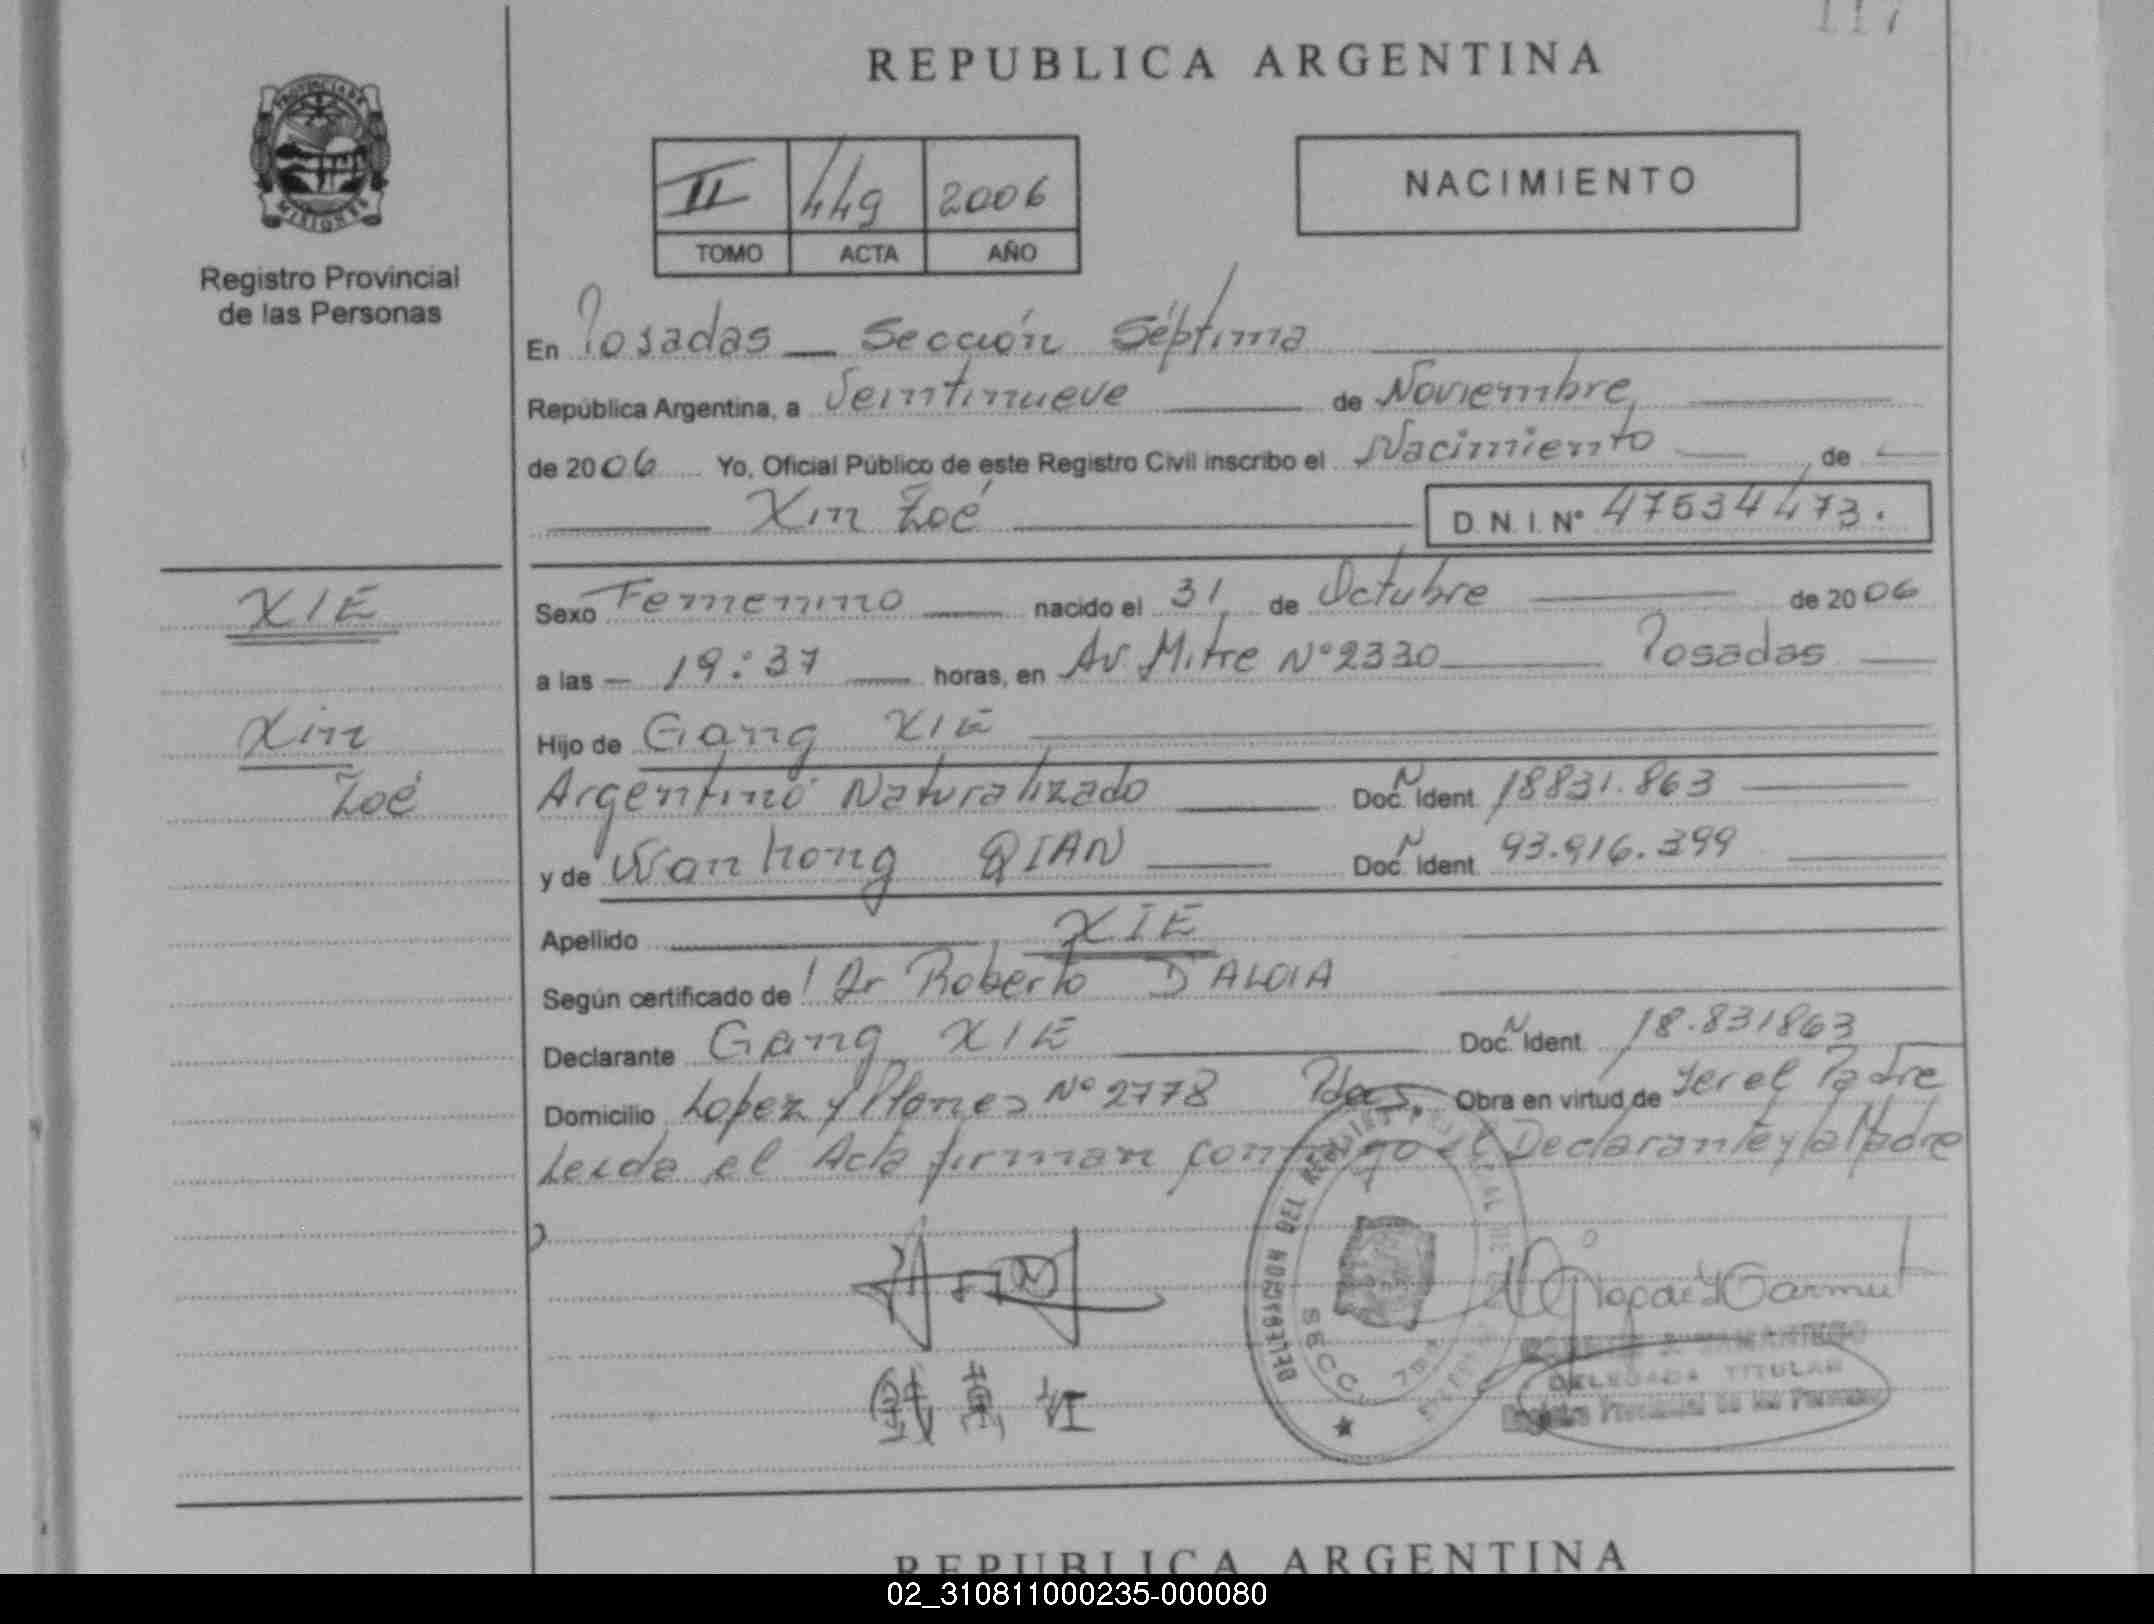 117
REPUBLICA ARGENTINA
PROVINCIA DE MISIONES
Registro Provincial
de las Personas
II 449 2006
TOMO ACTA AÑO
NACIMIENTO
En Posadas Sección Séptima
República Argentina, a Veintinueve de Noviembre
de 2006 Yo, Oficial Público de este Registro Civil inscribo el Nacimiento de
Xin Zoé D.N.I. Nº 47534473.
XIE
Xin
Zoé
Sexo Femenino nacido el 31 de Octubre de 2006
a las 19:37 horas, en Av. Mitre Nº 2330 Posadas
Hijo de Gang XIE
Argentino Naturalizado Doc. N Ident. 18831.863
y de Wanhong QIAN Doc. N Ident. 93.916.399
Apellido XIE
Según certificado de Dr Roberto D'ALOIA
Declarante Gang XIE Doc. N Ident. 18.831863
Domicilio Lopez y Planes Nº 2778 Pdas. Obra en virtud de ser el Padre
Leida el Acta firman conmigo el Declarante y la Madre
DELEGACION DEL REGISTRO PROVINCIAL DE
SECC. 7ma
錢萬紅
DELEGADA TITULAR
Registro Provincial de las Personas
REPUBLICA ARGENTINA
02_310811000235-000080